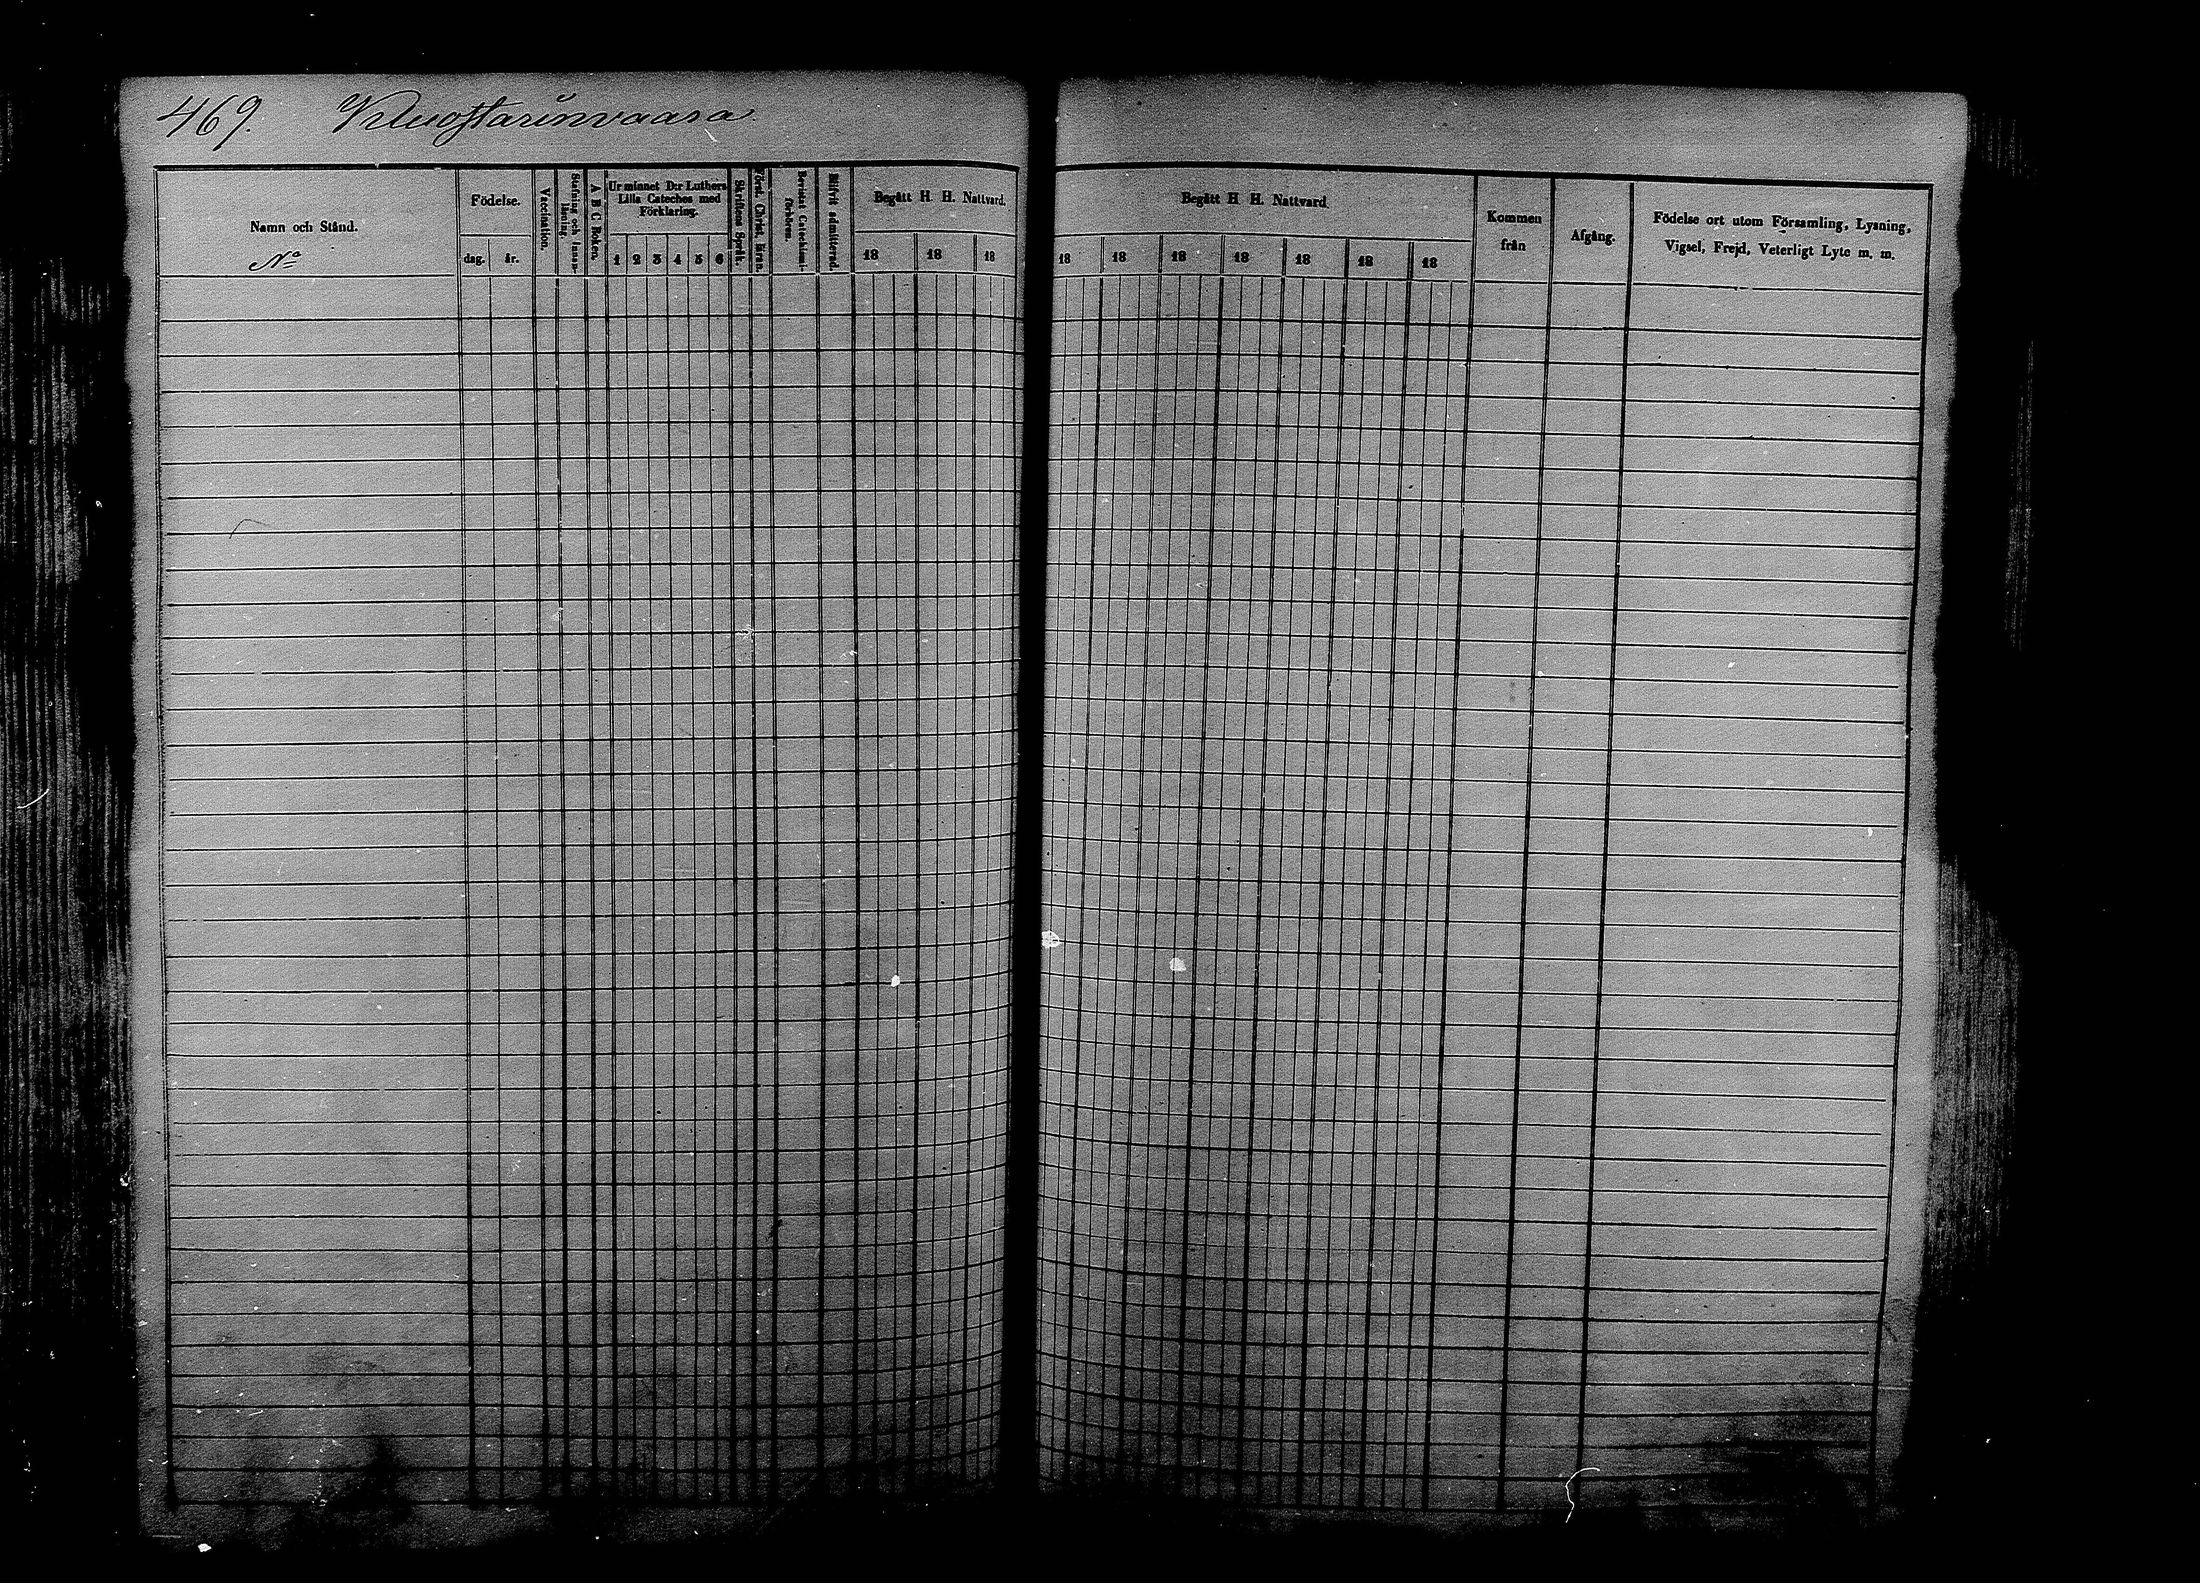 469. Viluoftarinvaara
Namn och Stånd.
No
Födelse.
dag. år.
Vaccination.
Stafning och Innan-
läsning.
A B C Boken.
Ur minnet D:r Luthers
Lilla Cateches med
Förklaring.
1 2 3 4 5 6
Skriftens Språk.
Först. Christ. läran.
Bevistat Catechismi-
förhören.
Blifvit admitterad.
Begått H. H. Nattvard.
18 18 18
Begått H H. Nattvard.
18 18 18 18 18 18 18
Kommen
från
Afgång.
Födelse ort utom Församling, Lysning,
Vigsel, Frejd, Veterligt Lyte m. m.